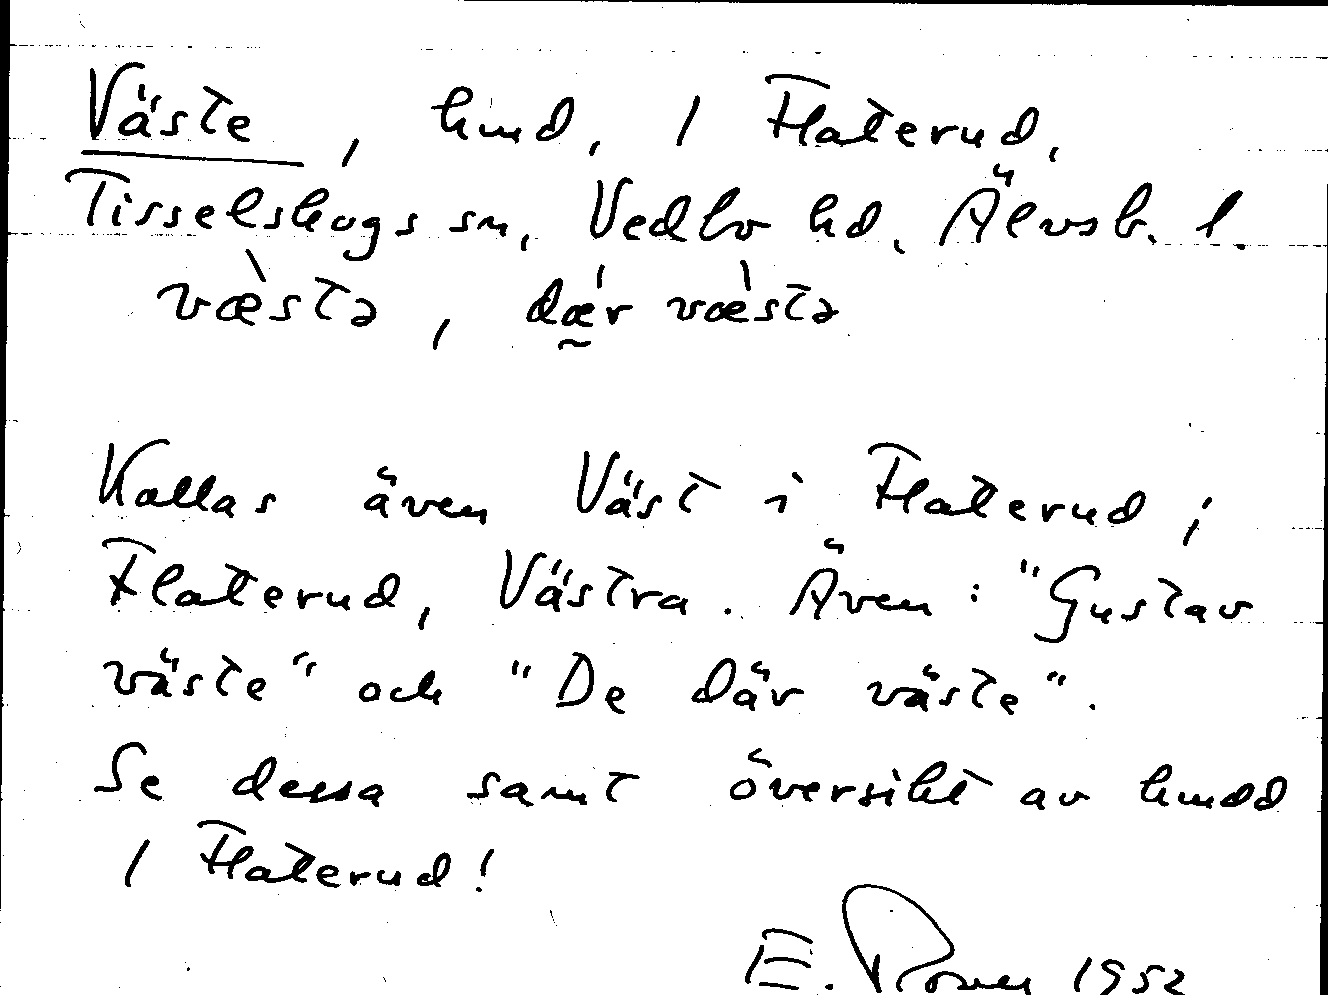 Väste, hmd, / Flaterud,
Tisselskogs sn, Vedbo hd, Älvsb. l.
væ̀stə, dǽ̰r væ̀stə
Kallas även Väst i Flaterud;
Flaterud, Västra. Även: "Gustav
väste" och "De där väste".
Se dessa samt översikt av hmdd
/ Flaterud!
E. 1952